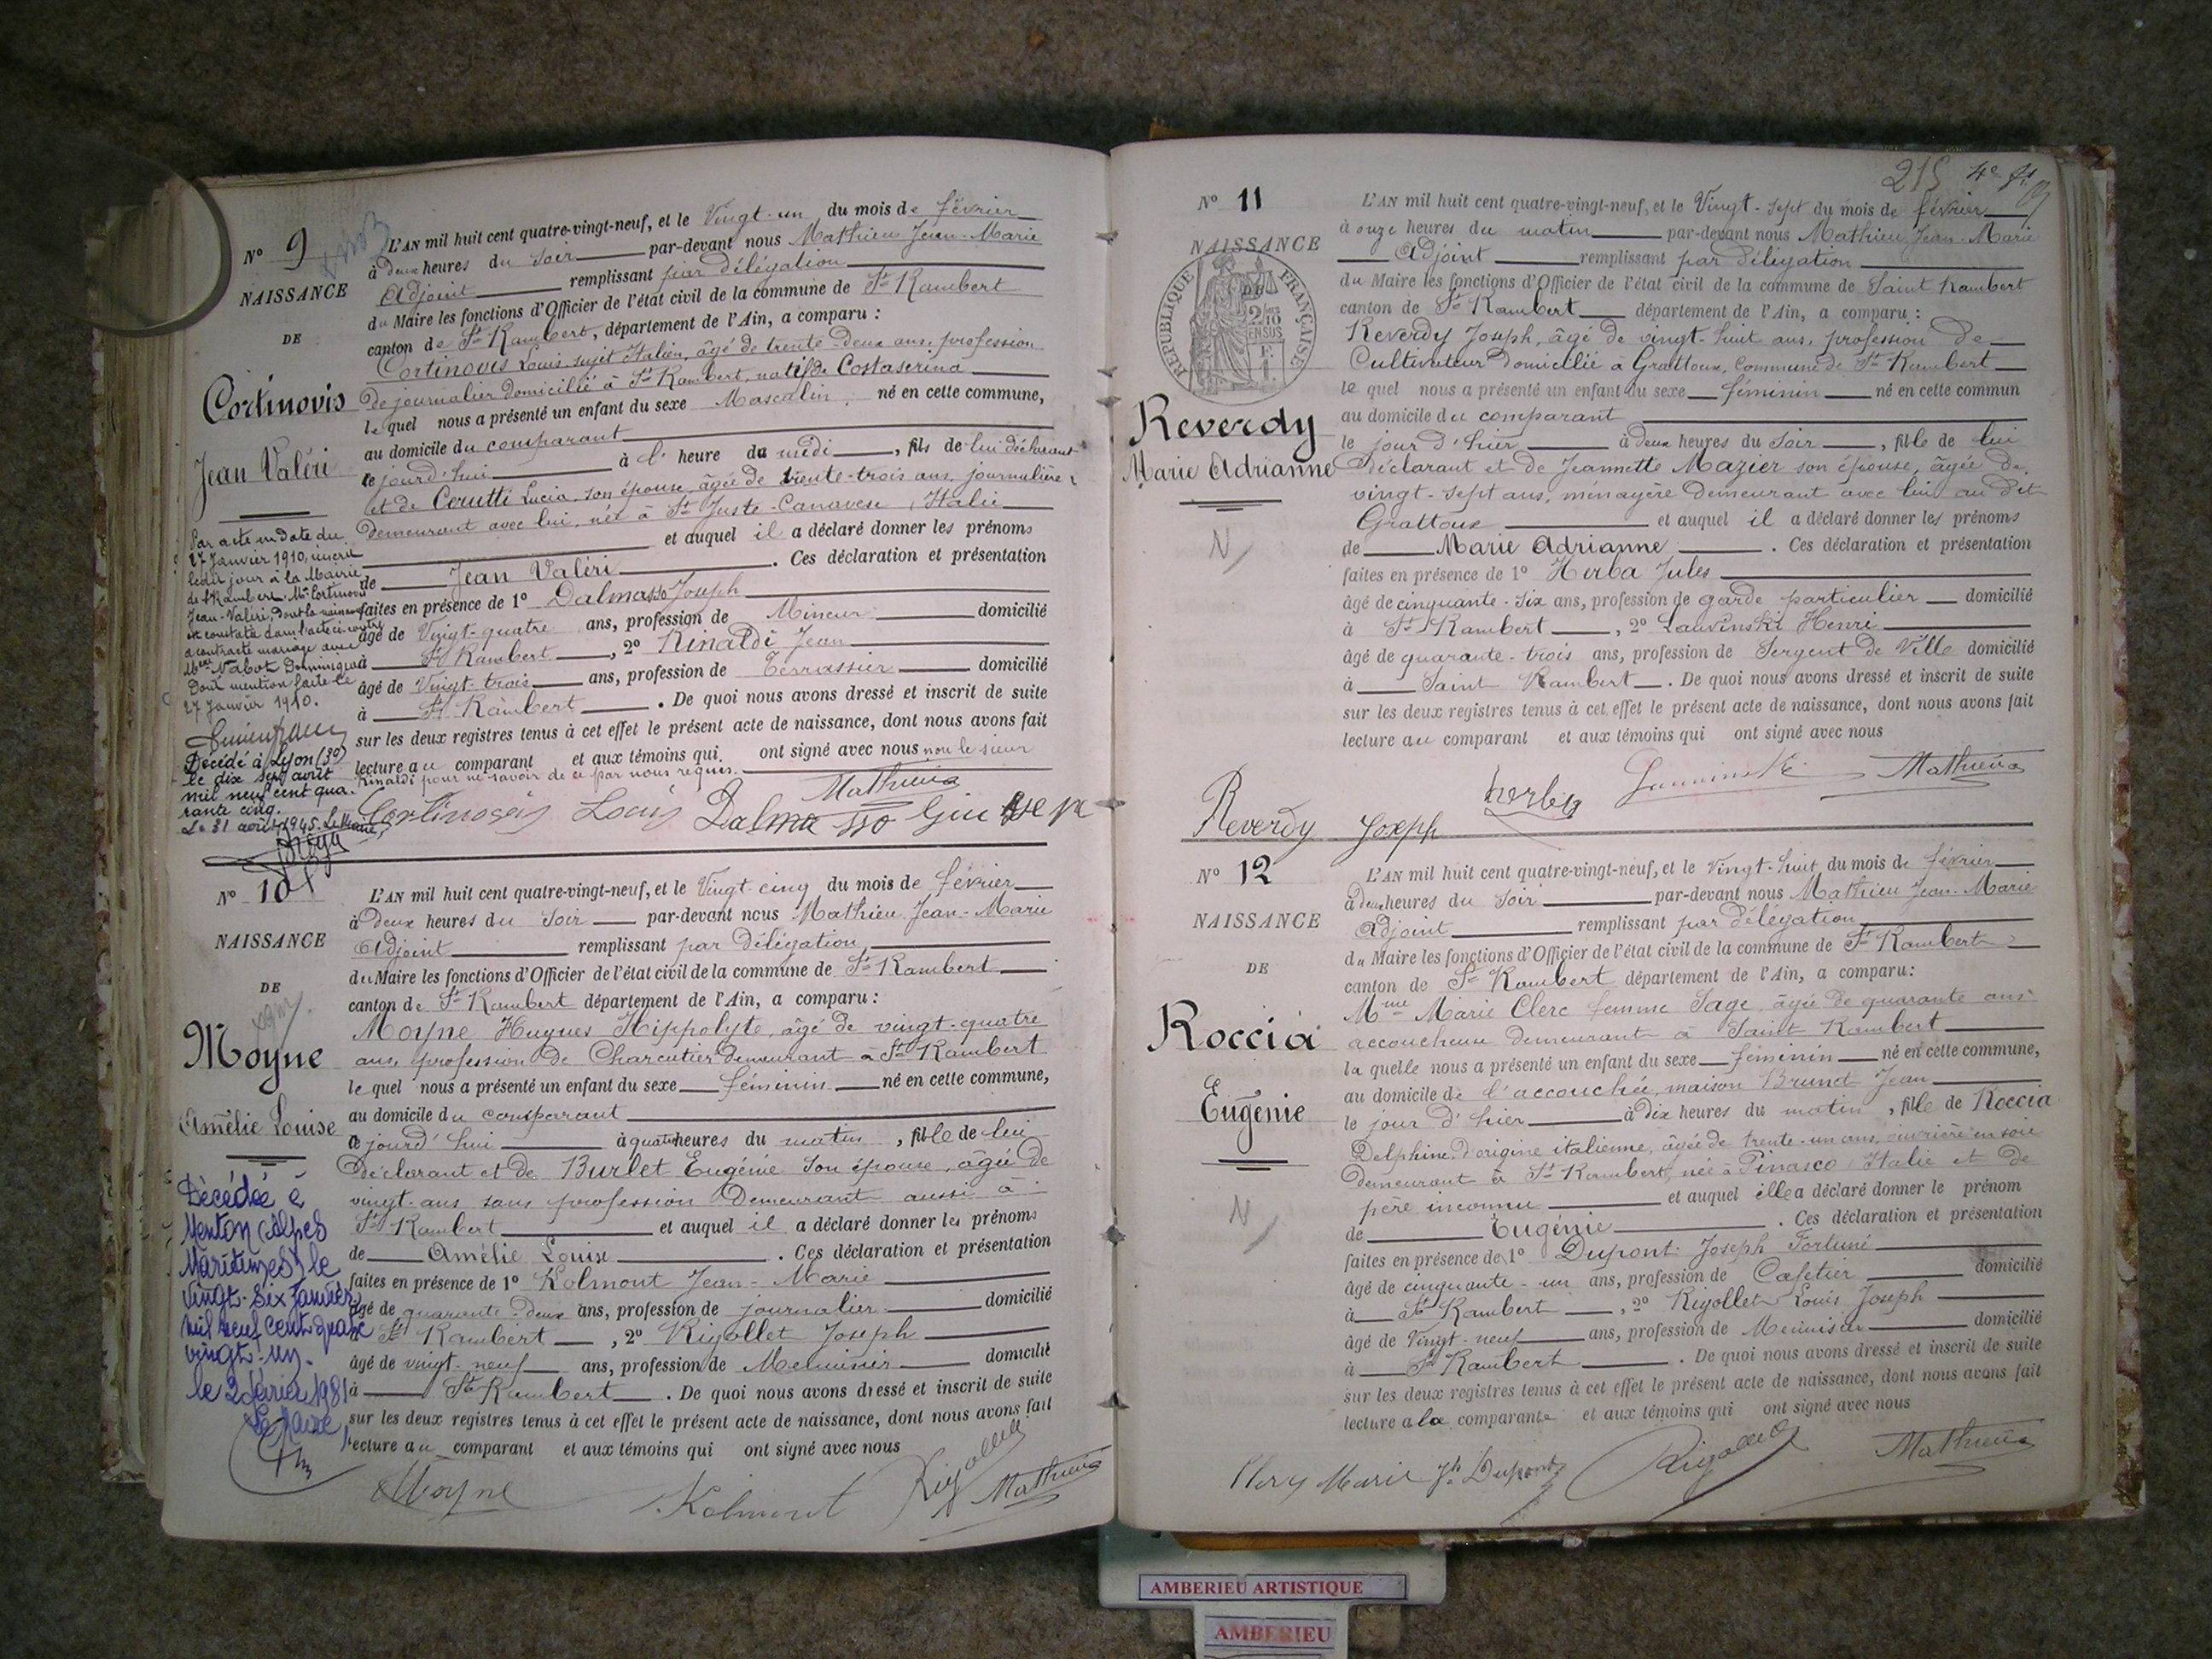 N° 9
NAISSANCE
DE
Cortinovis
Jean Valéri
Par acte en date du
27 Janvier 1910, inscrit
ledit jour à la Mairie
de St Rambert, Mr Cortinovis
Jean-Valéri, dont la naissance
est constatée dans l'acte ci-contre
a contracté mariage avec
Nabot Dominique
Dont mention faite le
27 Janvier 1910.
Décédé à Lyon (3e)
le dix sept août
mil neuf cent qua-
rante cinq.
Le 31 août 1945. Le Maire,
L'AN mil huit cent quatre-vingt-neuf, et le Vingt-un du mois de février
à deux heures du soir par-devant nous Mathieu Jean-Marie
Adjoint remplissant par délégation
du Maire les fonctions d'Officier de l'état civil de la commune de St Rambert
canton de St Rambert, département de l'Ain, a comparu :
Cortinovis Louis, sujet Italien, âgé de trente-deux ans, profession
de journalier domicilié à St Rambert, natif de Costaserina
le quel nous a présenté un enfant du sexe Masculin, né en cette commune,
au domicile du comparant
ce jourd'hui à l' heure du midi, fils de lui déclarant
et de Cerutti Lucia, son épouse, âgée de trente-trois ans, journalière
demeurant avec lui, née à St Juste-Canavese, Italie
et auquel il a déclaré donner les prénoms
de Jean Valéri. Ces déclaration et présentation
faites en présence de 1° Dalmasso Joseph
âgé de Vingt-quatre ans, profession de Mineur domicilié
à St Rambert, 2° Rinaldi Jean
âgé de Vingt-trois ans, profession de Terrassier domicilié
à St Rambert. De quoi nous avons dressé et inscrit de suite
sur les deux registres tenus à cet effet le présent acte de naissance, dont nous avons fait
lecture au comparant et aux témoins qui ont signé avec nous non le sieur
Rinaldi pour ne savoir de ce par nous requis.
Mathieu
Louis Dalmasso
N° 10
NAISSANCE
DE
Moyne
Amélie Louise
Décédée à
Menton (Alpes
Maritimes) le
vingt-six Janvier
mil neuf cent quatre
vingt-un.
le 2 février 1981
Le Maire,
L'AN mil huit cent quatre-vingt-neuf, et le Vingt-cinq du mois de février
à deux heures du soir par-devant nous Mathieu Jean-Marie
Adjoint remplissant par délégation
du Maire les fonctions d'Officier de l'état civil de la commune de St Rambert
canton de St Rambert département de l'Ain, a comparu :
Moyne Hugues Hippolyte, âgé de vingt-quatre
ans, profession de Charcutier demeurant à St Rambert
le quel nous a présenté un enfant du sexe féminin né en cette commune,
au domicile du comparant
ce jourd'hui à quatre heures du matin, fille de lui
déclarant et de Burlet Eugénie son épouse, âgée de
vingt ans sans profession demeurant aussi à
St Rambert et auquel il a déclaré donner les prénoms
de Amélie Louise. Ces déclaration et présentation
faites en présence de 1° Kolmont Jean-Marie
âgé de quarante-deux ans, profession de journalier domicilié
à St Rambert, 2° Rigollet Joseph
âgé de vingt-neuf ans, profession de Menuisier domicilié
à St Rambert. De quoi nous avons dressé et inscrit de suite
sur les deux registres tenus à cet effet le présent acte de naissance, dont nous avons fait
lecture au comparant et aux témoins qui ont signé avec nous
Moyne Kolmont Mathieu
215 4e
N° 11
NAISSANCE
RÉPUBLIQUE FRANÇAISE
2/10
EN SUS
Reverdy
Marie Adrianne
N
L'AN mil huit cent quatre-vingt-neuf, et le Vingt-sept du mois de février
à onze heures du matin par-devant nous Mathieu Jean-Marie
Adjoint remplissant par délégation
du Maire les fonctions d'Officier de l'état civil de la commune de Saint Rambert
canton de St Rambert département de l'Ain, a comparu :
Reverdy Joseph, âgé de vingt-huit ans, profession de
Cultivateur domicilié à Grattoux, Commune de St Rambert
le quel nous a présenté un enfant du sexe féminin né en cette commun
au domicile du comparant
le jour d'hier à deux heures du soir, fille de lui
déclarant et de Jeannette Mazier son épouse, âgée de
vingt-sept ans, ménagère demeurant avec lui au dit
Grattoux et auquel il a déclaré donner les prénoms
de Marie Adrianne. Ces déclaration et présentation
faites en présence de 1° Herba Jules
âgé de cinquante-six ans, profession de garde particulier domicilié
à St Rambert, 2° Lauvinski Henri
âgé de quarante-trois ans, profession de Sergent de Ville domicilié
à Saint Rambert. De quoi nous avons dressé et inscrit de suite
sur les deux registres tenus à cet effet le présent acte de naissance, dont nous avons fait
lecture au comparant et aux témoins qui ont signé avec nous
Reverdy Joseph Mathieu
N° 12
NAISSANCE
DE
Roccia
Eugénie
N
L'AN mil huit cent quatre-vingt-neuf, et le Vingt-huit du mois de février
à deux heures du soir par-devant nous Mathieu Jean-Marie
Adjoint remplissant par délégation
du Maire les fonctions d'Officier de l'état civil de la commune de St Rambert
canton de St Rambert département de l'Ain, a comparu :
Mme Marie Clerc femme Sage, âgée de quarante ans
accoucheuse demeurant à Saint Rambert
la quelle nous a présenté un enfant du sexe féminin né en cette commune,
au domicile de l'accouchée, maison Brunet Jean
le jour d'hier à dix heures du matin, fille de Roccia
Delphine, d'origine italienne, âgée de trente-un ans, ouvrière en soie
demeurant à St Rambert, née à Pinasco, Italie et de
père inconnu et auquel elle a déclaré donner le prénom
de Eugénie. Ces déclaration et présentation
faites en présence de 1° Dupont Joseph Fortuné
âgé de cinquante-un ans, profession de Cafetier domicilié
à St Rambert, 2° Rigollet Louis Joseph
âgé de Vingt-neuf ans, profession de Menuisier domicilié
à St Rambert. De quoi nous avons dressé et inscrit de suite
sur les deux registres tenus à cet effet le présent acte de naissance, dont nous avons fait
lecture a la comparante et aux témoins qui ont signé avec nous
Marie Dupont Mathieu
AMBERIEU ARTISTIQUE
AMBERIEU